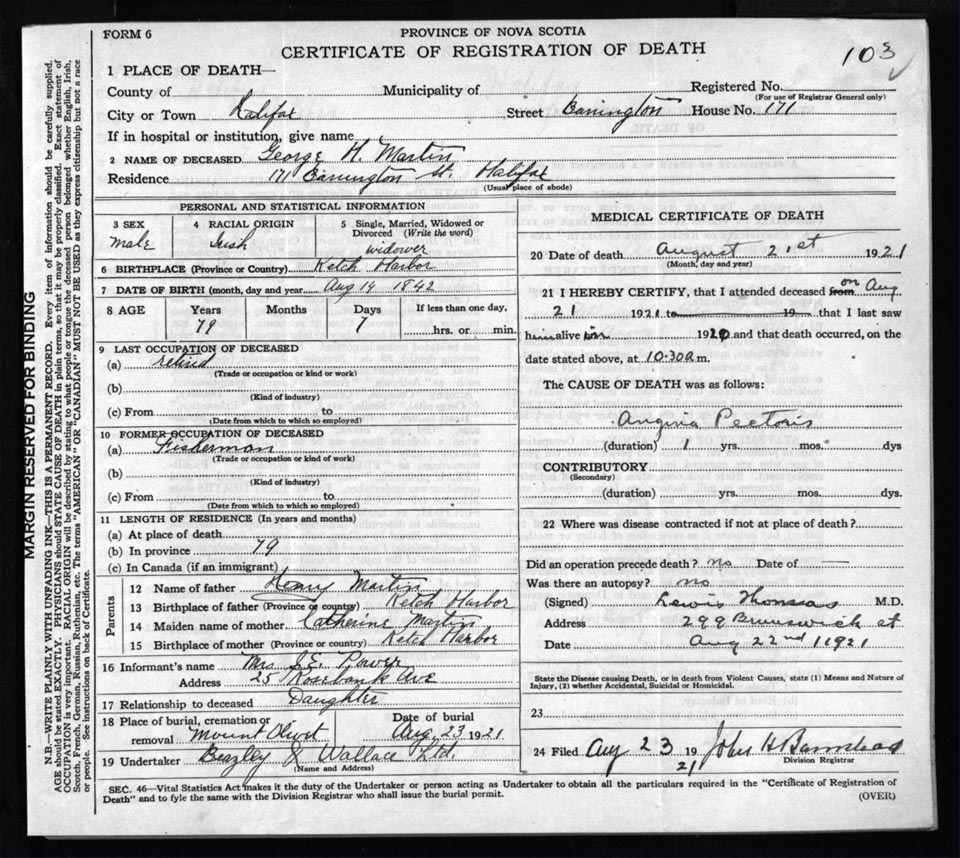 FORM 6
PROVINCE OF NOVA SCOTIA
CERTIFICATE OF REGISTRATION OF DEATH
103
MARGIN RESERVED FOR BINDING
N.B.—WRITE PLAINLY WITH UNFADING INK—THIS IS A PERMANENT RECORD. Every item of information should be carefully supplied.
AGE should be stated EXACTLY. PHYSICIANS should STATE CAUSE OF DEATH in plain terms, so that it may be properly classified. Exact statement of
OCCUPATION is very important. RACIAL ORIGIN will be described by stating to what people or tongue the deceased person belonged, whether English, Irish,
Scotch, French, German, Russian, Ruthenian, etc. The terms "AMERICAN" OR "CANADIAN" MUST NOT BE USED as they express citizenship but not a race
or people. See instructions on back of Certificate.
1 PLACE OF DEATH—
County of Municipality of Registered No.
(For use of Registrar General only)
City or Town Halifax Street Barrington House No. 171
If in hospital or institution, give name
2 NAME OF DECEASED George H. Martin
Residence 171 Barrington St. Halifax
(Usual place of abode)
PERSONAL AND STATISTICAL INFORMATION
3 SEX
Male
4 RACIAL ORIGIN
Irish
5 Single, Married, Widowed or
Divorced (Write the word)
widower
6 BIRTHPLACE (Province or Country) Ketch Harbor
7 DATE OF BIRTH (month, day and year) Aug 14 1842
8 AGE
Years
79
Months
Days
7
If less than one day,
hrs. or min.
9 LAST OCCUPATION OF DECEASED
(a) retired
(Trade or occupation or kind or work)
(b)
(Kind of industry)
(c) From to
(Date from which to which so employed)
10 FORMER OCCUPATION OF DECEASED
(a) Fisherman
(Trade or occupation or kind of work)
(b)
(Kind of industry)
(c) From to
(Date from which to which so employed)
11 LENGTH OF RESIDENCE (In years and months)
(a) At place of death
(b) In province 79
(c) In Canada (if an immigrant)
Parents
12 Name of father Henry Martin
13 Birthplace of father (Province or country) Ketch Harbor
14 Maiden name of mother Catherine Martin
15 Birthplace of mother Ketch Harbor
16 Informant's name Mrs J.E. Power
Address 25 Rosebank Ave
17 Relationship to deceased Daughter
18 Place of burial, cremation or
removal Mount Olivet
Date of burial
Aug. 23 1921
19 Undertaker Beazley & Wallace Ltd.
(Name and Address)
MEDICAL CERTIFICATE OF DEATH
20 Date of death August 21st 1921
(Month, day and year)
21 I HEREBY CERTIFY, that I attended deceased from on Aug
21 1921 to 19 that I last saw
him alive on 1920 and that death occurred, on the
date stated above, at 10.30 a.m.
The CAUSE OF DEATH was as follows:
Angina Pectoris
(duration) 1 yrs. mos. dys
CONTRIBUTORY
(Secondary)
(duration) yrs. mos. dys.
22 Where was disease contracted if not at place of death?
Did an operation precede death? no Date of —
Was there an autopsy? no
(Signed) Lewis Thomas M.D.
Address 299 Brunswick st
Date Aug 22nd 1921
State the Disease causing Death, or in death from Violent Causes, state (1) Means and Nature of
Injury, (2) whether Accidental, Suicidal or Homicidal.
23
24 Filed Aug 23 1921 John H Barnstead
Division Registrar
SEC. 46—Vital Statistics Act makes it the duty of the Undertaker or person acting as Undertaker to obtain all the particulars required in the "Certificate of Registration of
Death" and to fyle the same with the Division Registrar who shall issue the burial permit.
(OVER)